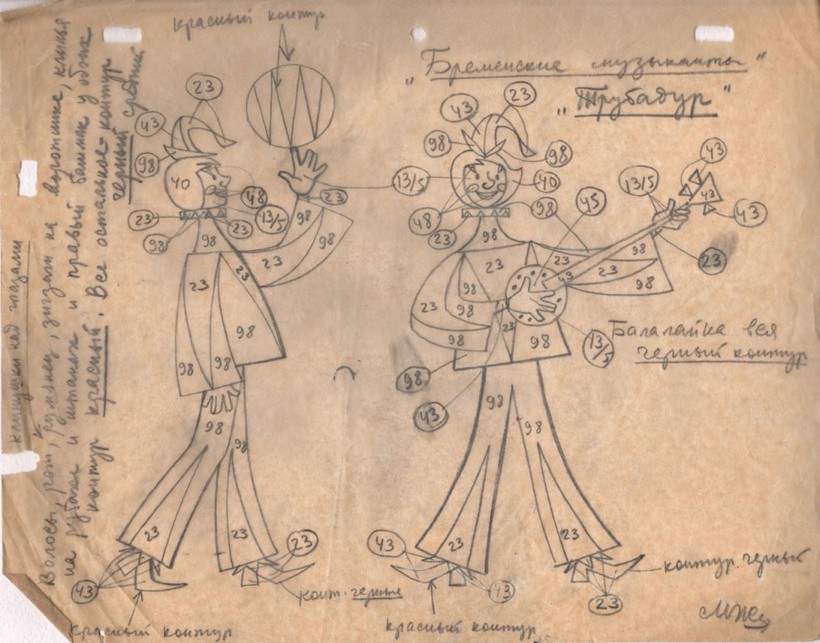 красный контур
„Бременские музыканты"
„Трубадур"
клинушки над глазами
Волосы, рот, румянец, зигзаги на воротнике, клинья
на рубахе и штанах и правый башмак у обоих
контур красный. Все остальное - контур
черный средний
23
43
98
40
48
13/5
23
23
98
23
98
98
23
98
23
23
98
98
98
98
98
23
23
43
23
конт. черные
красный контур
23
43
98
98
13/5
40
48
98
23
45
13/5
43
43
43
23
98
23
23
98
23
98
98
98
23
98
43
98
23
98
98
43
13/5
Балалайка вся
черный контур
98
98
23
23
43
43
23
контур черный
красный контур